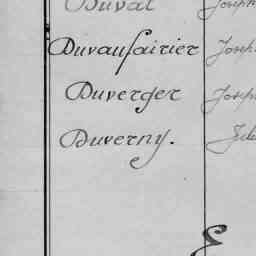 Duval Joseph
Duvaufairier Joseph
Duverger Joseph
Duverny.
E